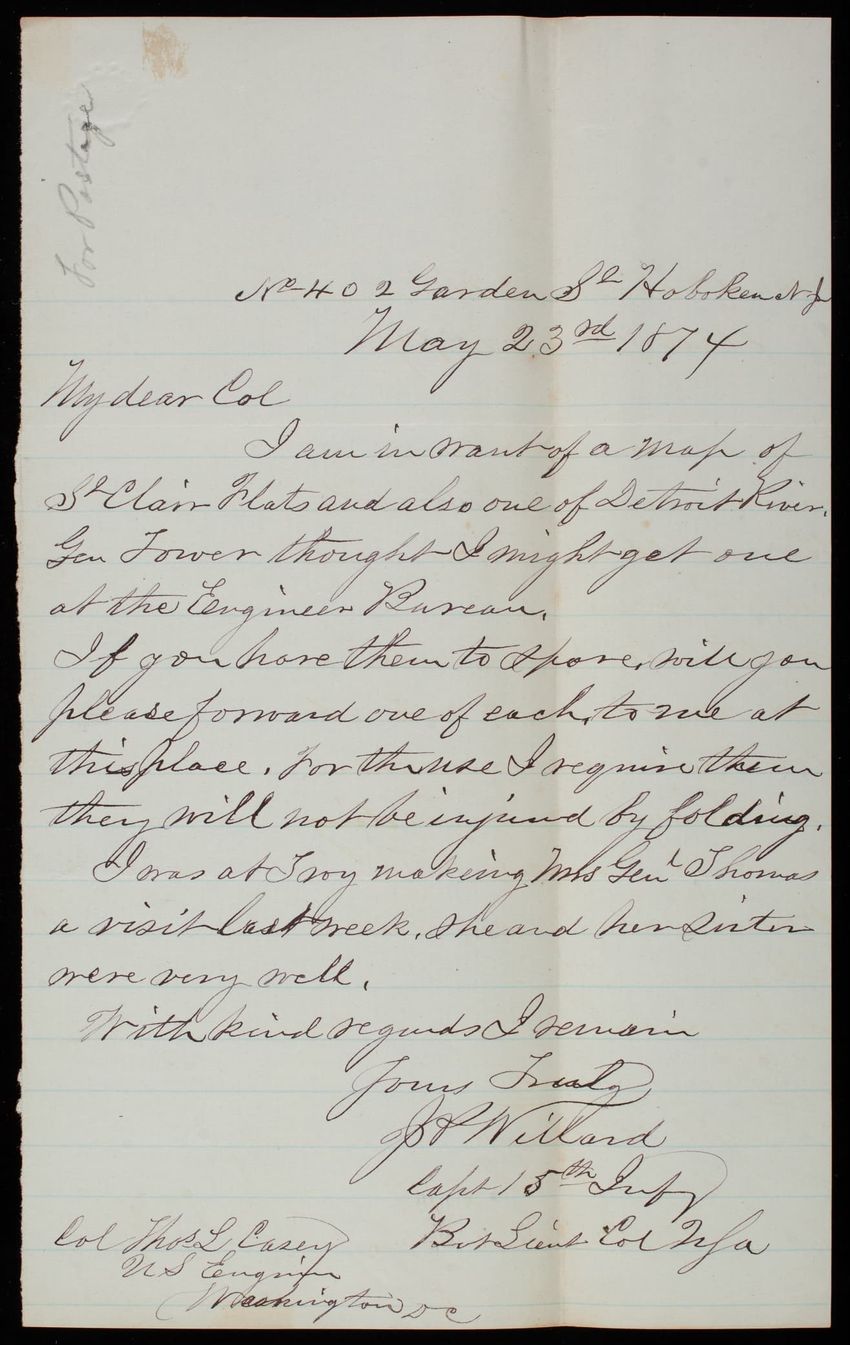 For Postage
No 402 Garden St Hoboken N J
May 23rd 1874
My dear Col
I am in want of a map of
St Clair Flats and also one of Detroit River.
Gen Tower thought I might get one
at the Engineer Bureau.
If you have them to spare, will you
please forward one of each, to me at
this place. For the use I require them
they will not be injured by folding.
I was at Troy making Mrs Genl Thomas
a visit last week, she and her sister
were very well.
With kind regards I remain
Yours Truly
J P Willard
Capt 15th Infy
Bvt Lieut Col USA
Col Thos L Casey
U S Engineer
Washington DC